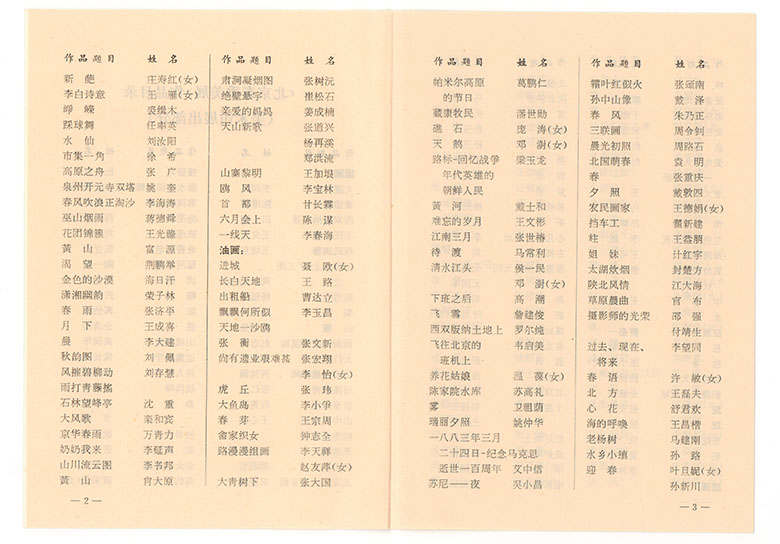 作品题目 姓名
新 葩 庄寿红(女)
李白诗意 王 雁(女)
峥 嵘 裘缉木
踩球舞 任率英
水 仙 刘汝阳
市集一角 徐 希
高原之舟 张 广
泉州开元寺双塔 姚 奎
春风吹浪正淘沙 李海涛
巫山烟雨 蒋德舜
花团锦簇 王光
黄 山 富 源
渴 望 荆鹏举
金色的沙漠 海日汗
潇湘幽韵 荣子林
春 雨 张济平
月 下 王成喜
晨 李大建
秋韵图 刘 佩
风摧碧柳动 刘存慧
雨打青藤摇
石林望峰亭 沈 重
大风歌 栾和宾
京华春雨 万青力
奶奶我来 李延声
山川流云图 李书邦
黄 山 肯大原
—2—
作品题目 姓名
肃涧凝烟图 张树沅
绝壁悬宇 崔松石
亲爱的妈妈 姜成楠
天山新歌 张道兴
杨再溪
郑洪流
山寨黎明 王加垠
鸥 风 李宝林
首 都 甘长霖
六月会上 陈 谋
一线天 李春海
油画:
进城 聂 欧(女)
长白天地 王 路
出租船 曹达立
飘飘何所似 李玉昌
天地一沙鸥
张 衡 张文新
尚有遗业艰难甚 张宏翔
李 怡(女)
虎 丘 张 玮
大鱼岛 李小
春 芽 王宗周
畲家织女 钟志全
路漫漫组画 李天祥
赵友萍(女)
大青树下 张大国
作品题目 姓名
帕米尔高原 葛鹏仁
的节日
藏康牧民 潘世勋
礁 石 庞 涛(女)
天 鹅 邓 澍(女)
路标-回忆战争 梁玉龙
年代英雄的
朝鲜人民
黄 河 戴士和
难忘的岁月 王文彬
江南三月 张世椿
待 渡 马常利
清水江头 侯一民
邓 澍(女)
下班之后 高 潮
飞 雪 詹建俊
西双版纳土地上 罗尔纯
飞往北京的 韦启美
班机上
养花姑娘 温 葆(女)
陈家院水库 苏高礼
雾 卫祖荫
瑞丽夕照 姚钟华
一八八三年三月
二十四日-纪念马克思
逝世一百周年 艾中信
苏尼——夜 吴小昌
作品题目 姓名
霜叶红似火 张颂南
孙中山像 戴 泽
春 风 朱乃正
三联画 周令钊
晨光初照 周路石
北国萌春 袁 明
春 张重庆
夕 照 戴敦四
农民画家 王德娟(女)
挡车工 翟新建
柱 王
姐 妹 计红宇
太湖炊烟 封楚方
陕北风情 江大海
草原晨曲 官 布
摄影师的光荣 邵 强
付靖生
过去、现在、 李望同
将来
春 语 许 敏(女)
北 方 王磊夫
心 花 舒君欢
海的呼唤 王昌楷
老杨树 马建刚
水乡小镇 孙 路
迎 春 叶旦妮(女)
孙新川
—3—